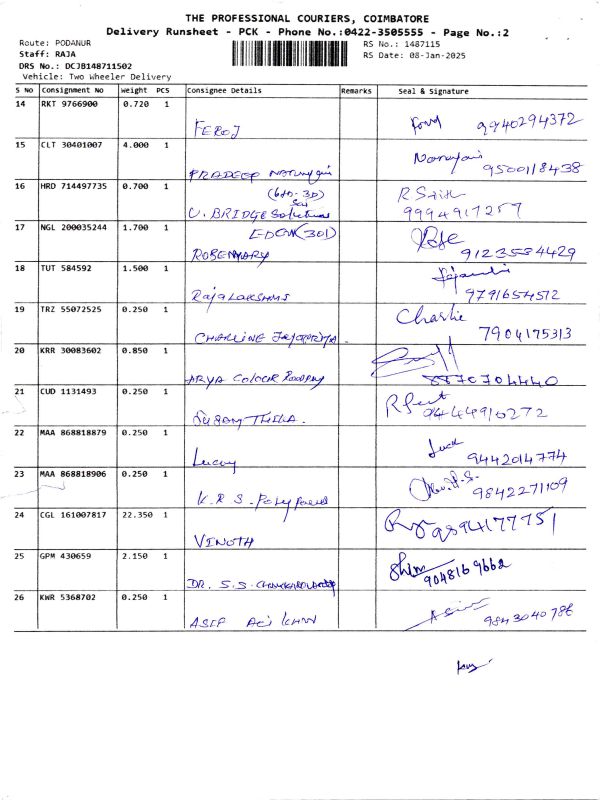 THE PROFESSIONAL COURIERS, COIMBATORE
Delivery Runsheet - PCK - Phone No.:0422-3505555 - Page No.:2
Route: PODANUR
RS No.: 1487115
Staff: RAJA
RS Date: 08-Jan-2025
DRS No.: DCJB148711502
Vehicle: Two Wheeler Delivery
S No Consignment No Weight PCS Consignee Details Remarks Seal & Signature
14 RKT 9766900 0.720 1
FEROJ 9940294372
15 CLT 30401007 4.000 1
PRADEEP 9500118438
16 HRD 714497735 0.700 1
U. BRIDGE Solutions 9994917257
17 NGL 200035244 1.700 1
EDEN (301)
ROSEMARY 9123584429
18 TUT 584592 1.500 1
RajaLakshmi 9791654512
19 TRZ 55072525 0.250 1
Charlie
7904175313
20 KRR 30083602 0.850 1
ARYA COLOUR 8870704440
21 CUD 1131493 0.250 1
9444910272
22 MAA 868818879 0.250 1
Lucay 9442014774
23 MAA 868818906 0.250 1
K.R.S. 9842271109
24 CGL 161007817 22.350 1
VINOTH 9894177751
25 GPM 430659 2.150 1
DR. S.S. 9048169662
26 KWR 5368702 0.250 1
ASIF Ali KHAN 9843040786